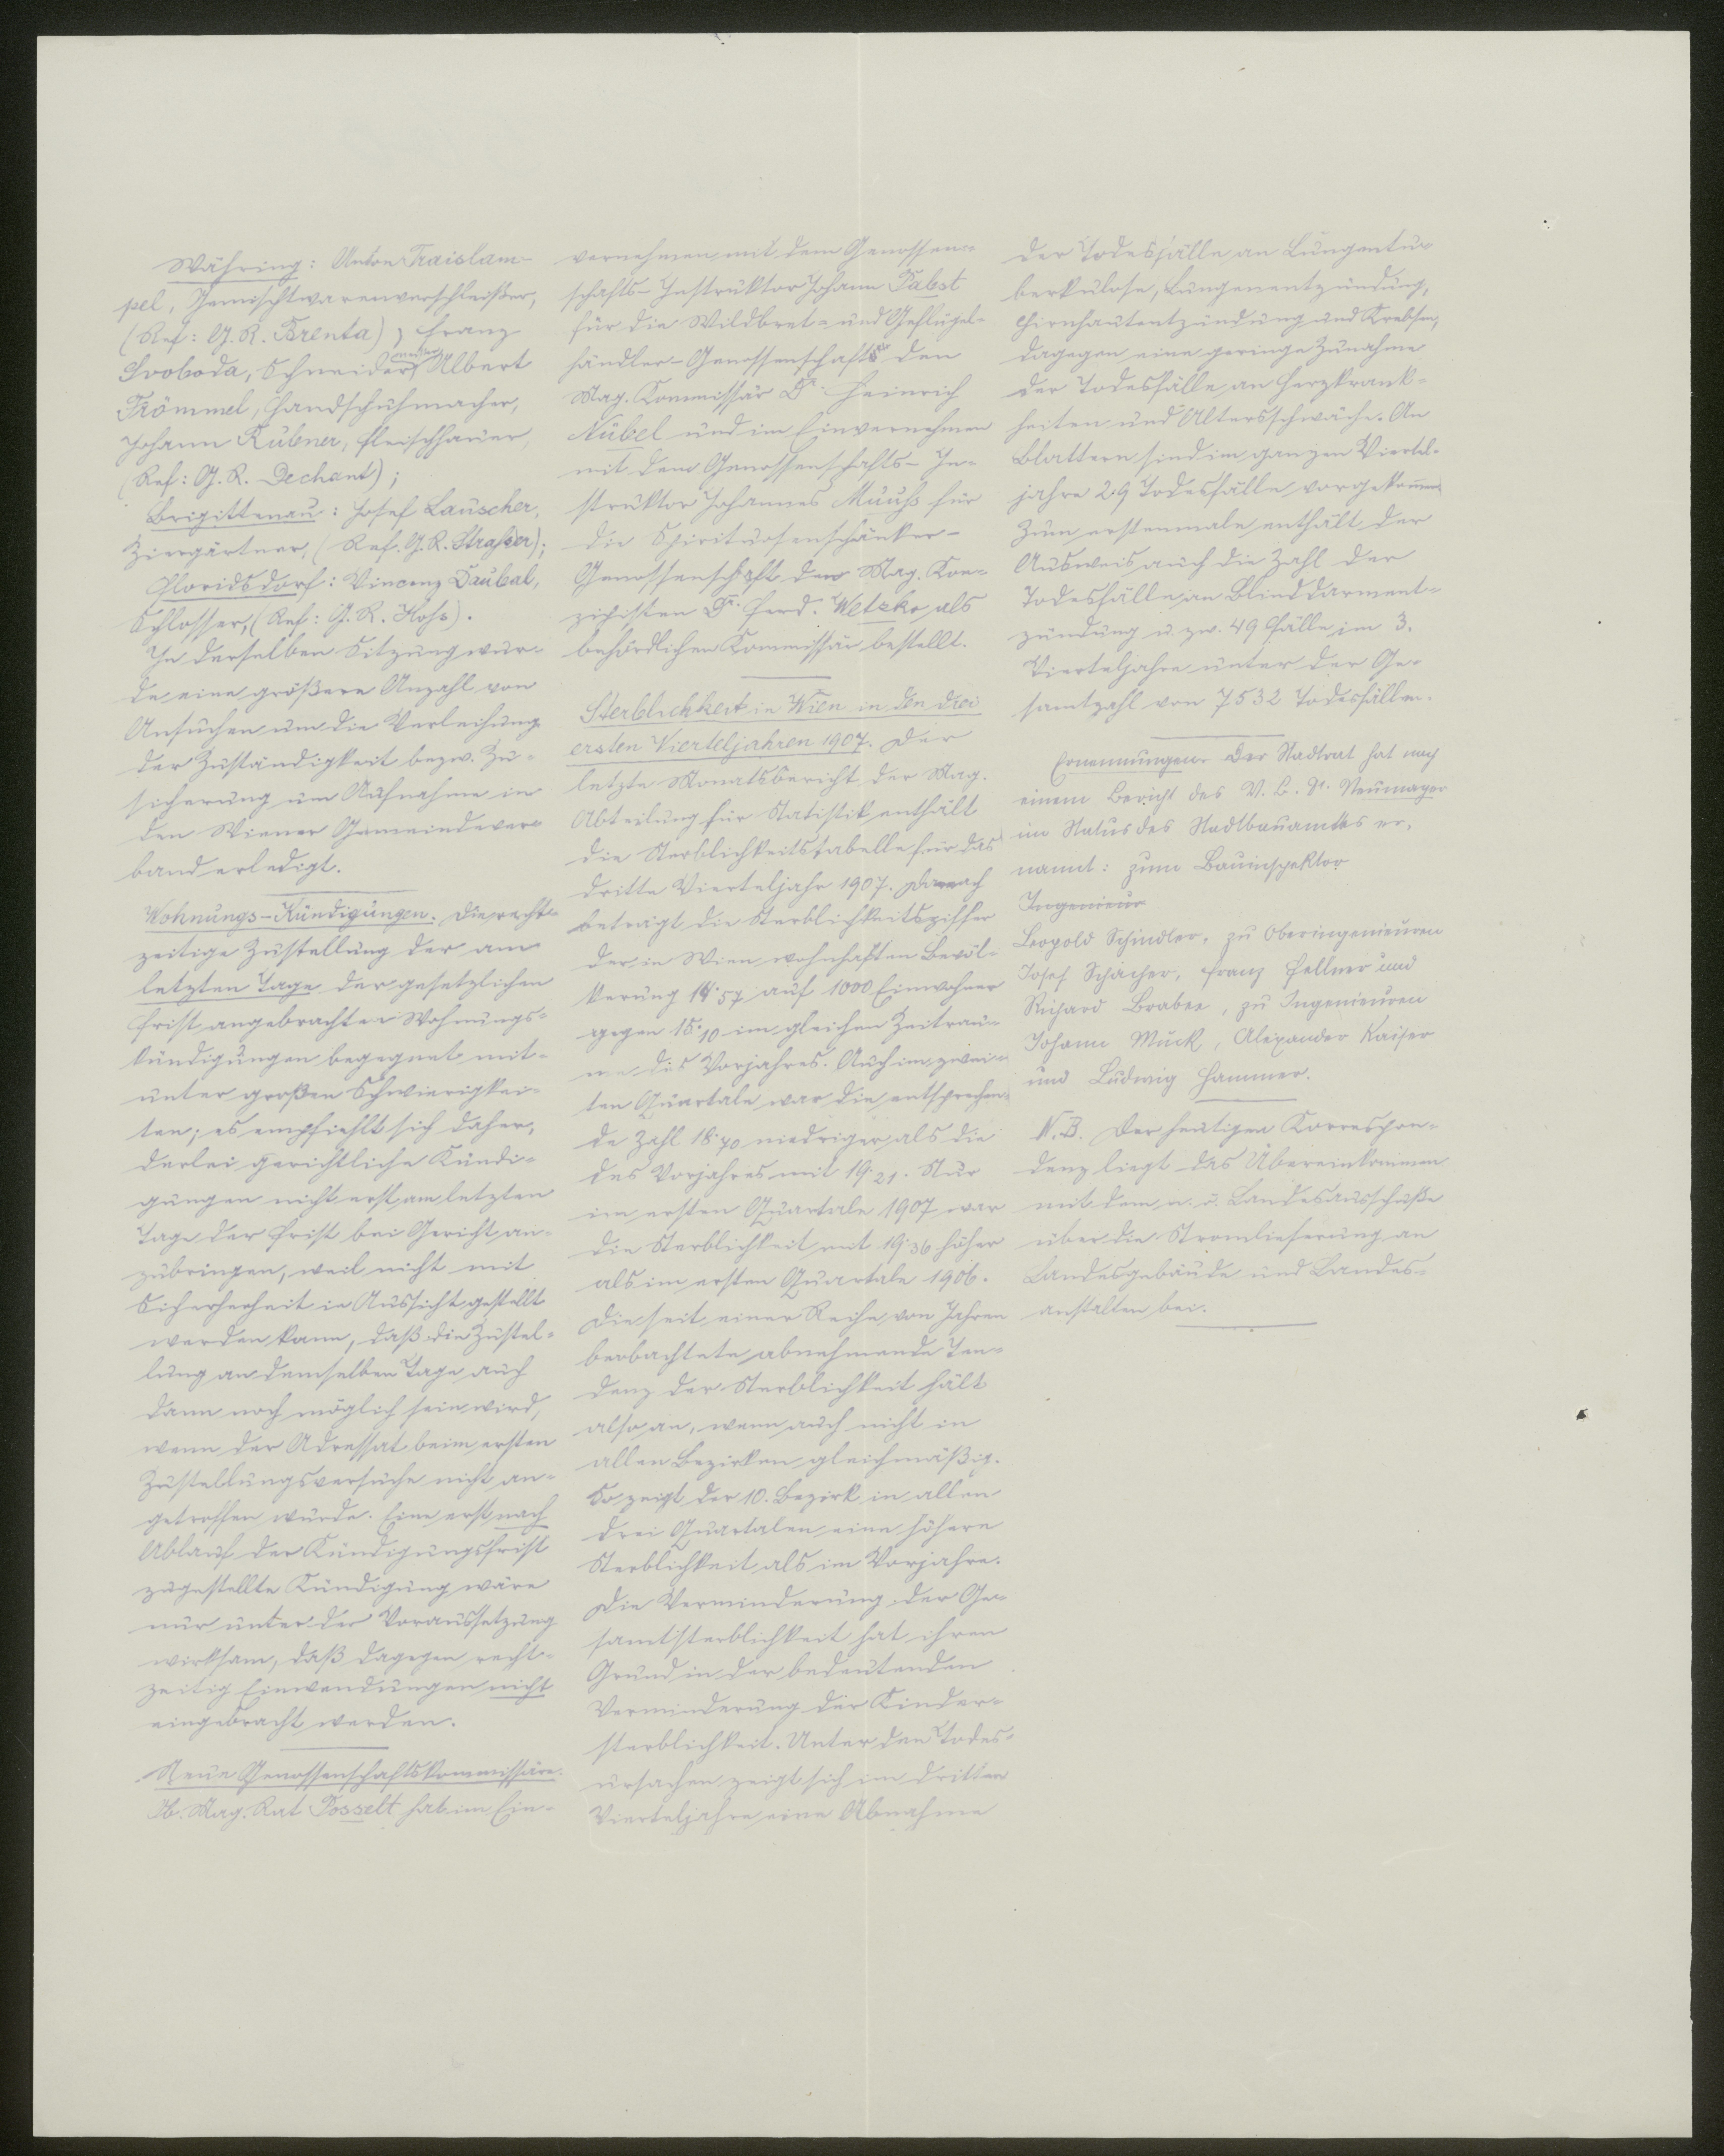 Währing: Anton Traislam-
pel, Gemischtwarenverschleißer,
(Ref: G. R. Brenta), Franz
Svoboda, Schneidermeister, Albert
Frömmel, Handschuhmacher,
Johann Rübner, Fleischhauer,
(Ref: G. R. Dechant);
Brigittenau: Josef Lauscher,
Ziergärtner, (Ref. G. R. Straßer);
Floridsdorf: Vincenz Daubal,
Schlosser, (Ref: G. R. Hohs).
In derselben Sitzung wur-
de eine größere Anzahl von
Ansuchen um die Verleihung
der Zuständigkeit bezw. Zu-
sicherung um Aufnahme in
den Wiener Gemeindever-
band erledigt.
Wohnungs-Kündigungen. Die recht-
zeitige Zustellung der am
letzten Tage der gesetzlichen
Frist angebrachten Wohnungs-
kündigungen begegnet mit-
unter großen Schwierigkei-
ten; es empfiehlt sich daher,
derlei gerichtliche Kündi-
gungen nicht erst am letzten
Tage der Frist bei Gericht an-
zubringen, weil nicht mit
Sicherherheit in Aussicht gestellt
werden kann, daß die Zustel-
lung an demselben Tage auch
dann noch möglich sein wird,
wenn der Adressat beim ersten
Zustellungsversuche nicht an-
getroffen wurde. Eine erst nach
Ablauf der Kündigungsfrist
zugestellte Kündigung wäre
nur unter der Voraussetzung
wirksam, daß dagegen recht-
zeitig Einwendungen nicht
eingebracht werden.
Neue Genossenschaftskommissäre.
Ob. Mag. Rat Posselt hat im Ein-
vernehmen mit dem Genossen-
schafts-Instruktor Johann Pabst
für die Wildbret- und Geflügel-
händler-Genossenschaft den
Mag. Kommissär Dr. Heinrich
Nübel und im Einvernehmen
mit dem Genossenschafts-In-
struktor Johannes Muuhs für
die Spirituosenschänker-
Genossenschaft den Mag. Kon-
zipisten Dr. Ferd. Wetzko als
behördlichen Kommissär bestellt.
Sterblichkeit in Wien in den drei
ersten Vierteljahren 1907. Der
letzte Monatsbericht der Mag.
Abteilung für Statistik enthält
die Sterblichkeitstabelle für das
dritte Vierteljahr 1907. Danach
beträgt die Sterblichkeitsziffer
der in Wien wohnhaften Bevöl-
kerung 14.57 auf 1000 Einwohner
gegen 15.10 im gleichen Zeitrau-
me des Vorjahres. Auch im zwei-
ten Quartale war die entsprechen-
de Zahl 18.70 niedriger als die
des Vorjahres mit 19.21. Nur
im ersten Quartale 1907 war
die Sterblichkeit mit 19.36 höher
als im ersten Quartale 1906.
Die seit einer Reihe von Jahren
beobachtete abnehmende Ten-
denz der Sterblichkeit hält
also an, wenn auch nicht in
allen Bezirken gleichmäßig.
So zeigt der 10. Bezirk in allen
drei Quartalen eine höhere
Sterblichkeit als im Vorjahre.
Die Verminderung der Ge-
samtsterblichkeit hat ihren
Grund in der bedeutenden
Verminderung der Kinder-
sterblichkeit. Unter den Todes-
ursachen zeigt sich im dritten
Vierteljahre eine Abnahme
der Todesfälle an Lungentu-
berkulose, Lungenentzündung,
Hirnhautentzündung und Krebsen,
dagegen eine geringe Zunahme
der Todesfälle an Herzkrank-
heiten und Altersschwäche. An
Blattern sind im ganzen Viertel-
jahre 29 Todesfälle vorgekommen
Zum erstenmale enthält der
Ausweis auch die Zahl der
Todesfälle an Blinddarment-
zündung u. zw. 49 Fälle im 3.
Vierteljahre unter der Ge-
samtzahl von 7532 Todesfällen.
Ernennungen. Der Stadtrat hat nach
einem Bericht des V. B. Dr. Neumayer
im Status des Stadtbauamtes er-
nannt: zum Bauinspektor
Ingenieur
Leopold Schindler, zu Oberingenieuren
Josef Schacher, Franz Fellner und
Richard Brabee, zu Ingenieuren
Johann Muck, Alexander Kaiser
und Ludwig Hammer.
N.B. Der heutigen Korrespon-
denz liegt das Übereinkommen
mit dem n. ö. Landesausschuße
über die Stromlieferung an
Landesgebäude und Landes-
anstalten bei.